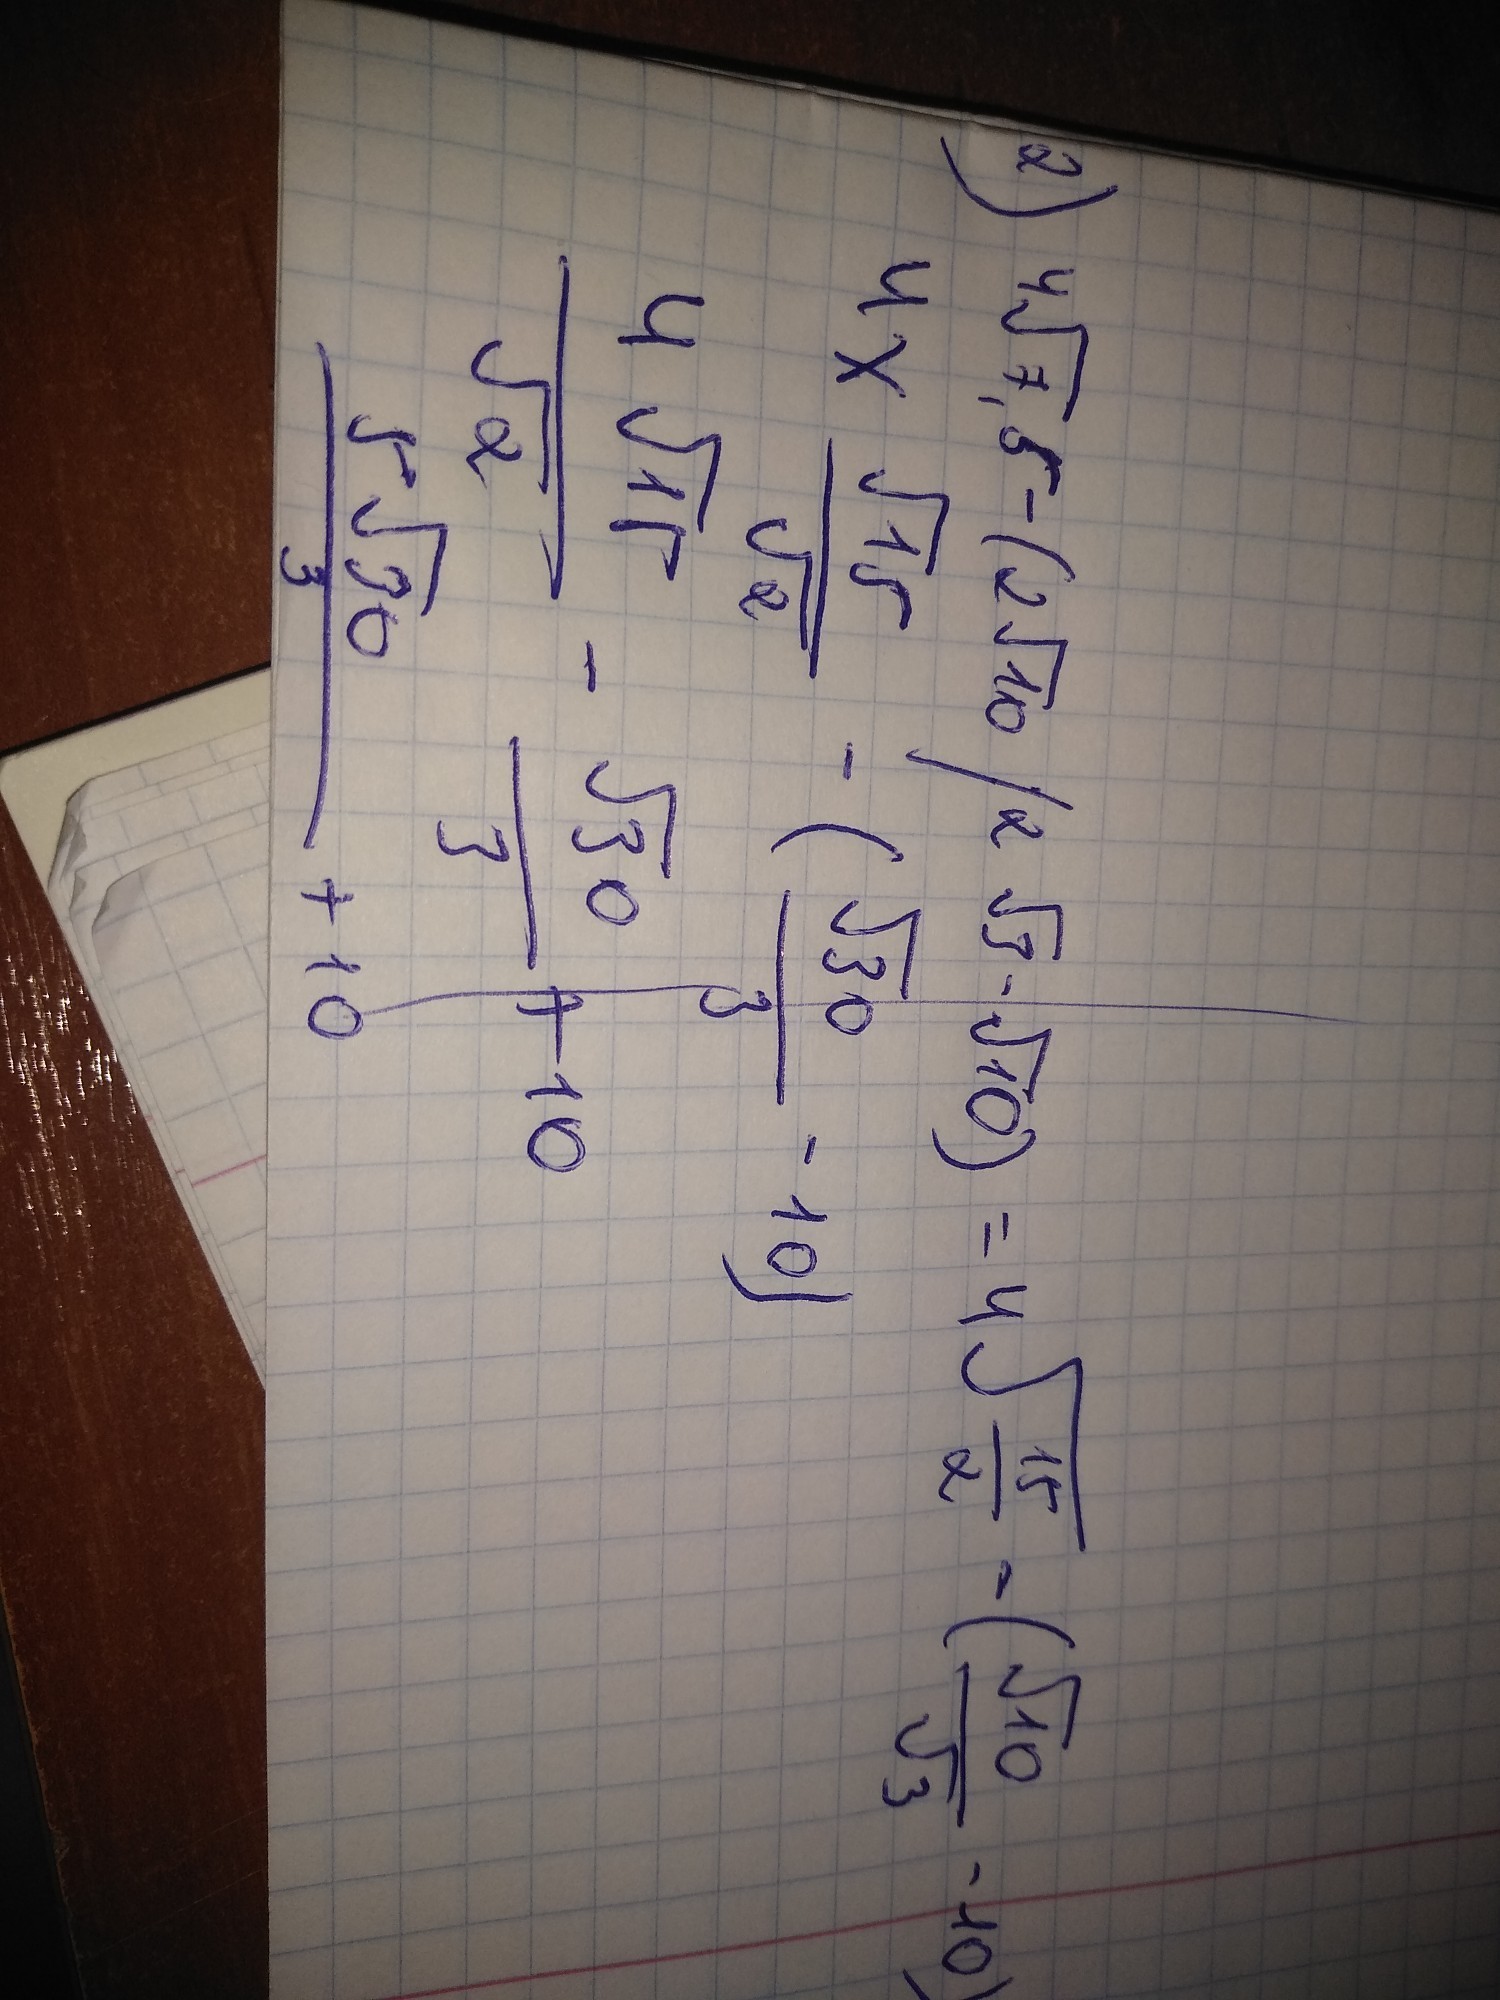 2) 4√7,5-(2√10/2√3-√10) = 4√15/2 - (√10/√3 - 10)
4 x √15/√2 - (√30/3 - 10)
4√15/√2 - √30/3 + 10
5√30/3 + 10